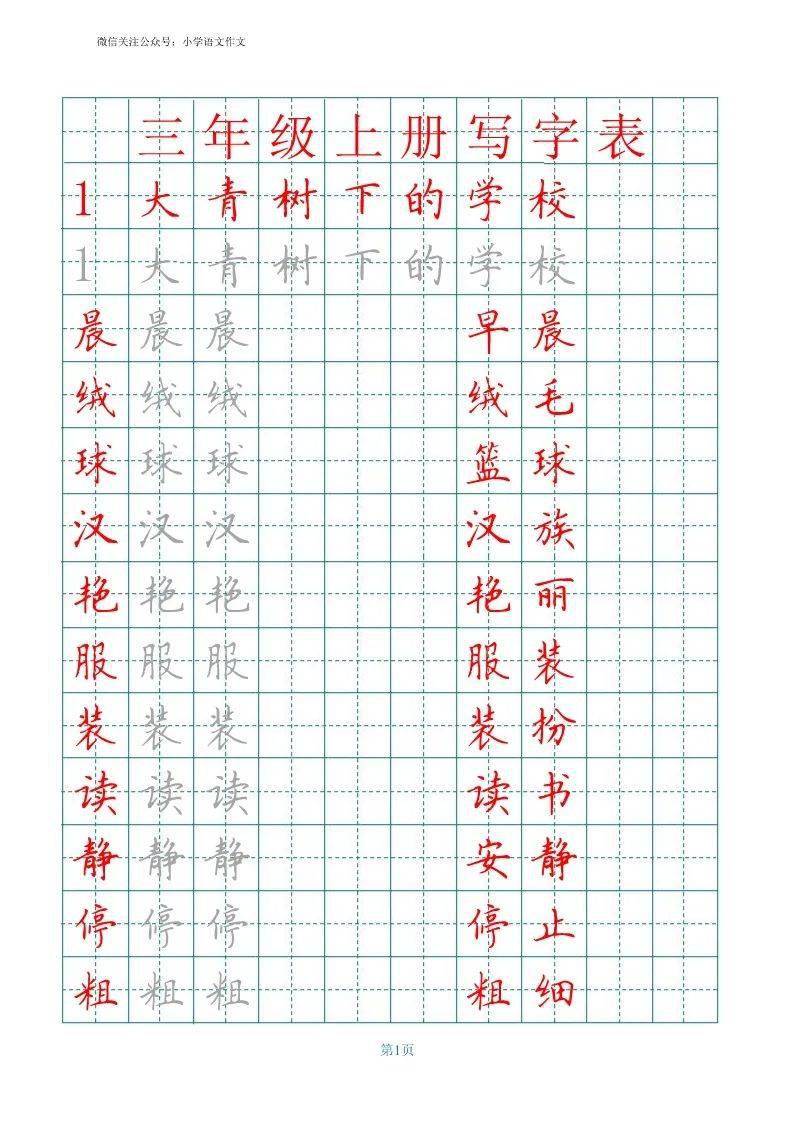 微信关注公众号：小学语文作文
三年级上册写字表
1大青树下的学校
1大青树下的学校
晨晨晨 早晨
绒绒绒 绒毛
球球球 篮球
汉汉汉 汉族
艳艳艳 艳丽
服服服 服装
装装装 装扮
读读读 读书
静静静 安静
停停停 停止
粗粗粗 粗细
第1页